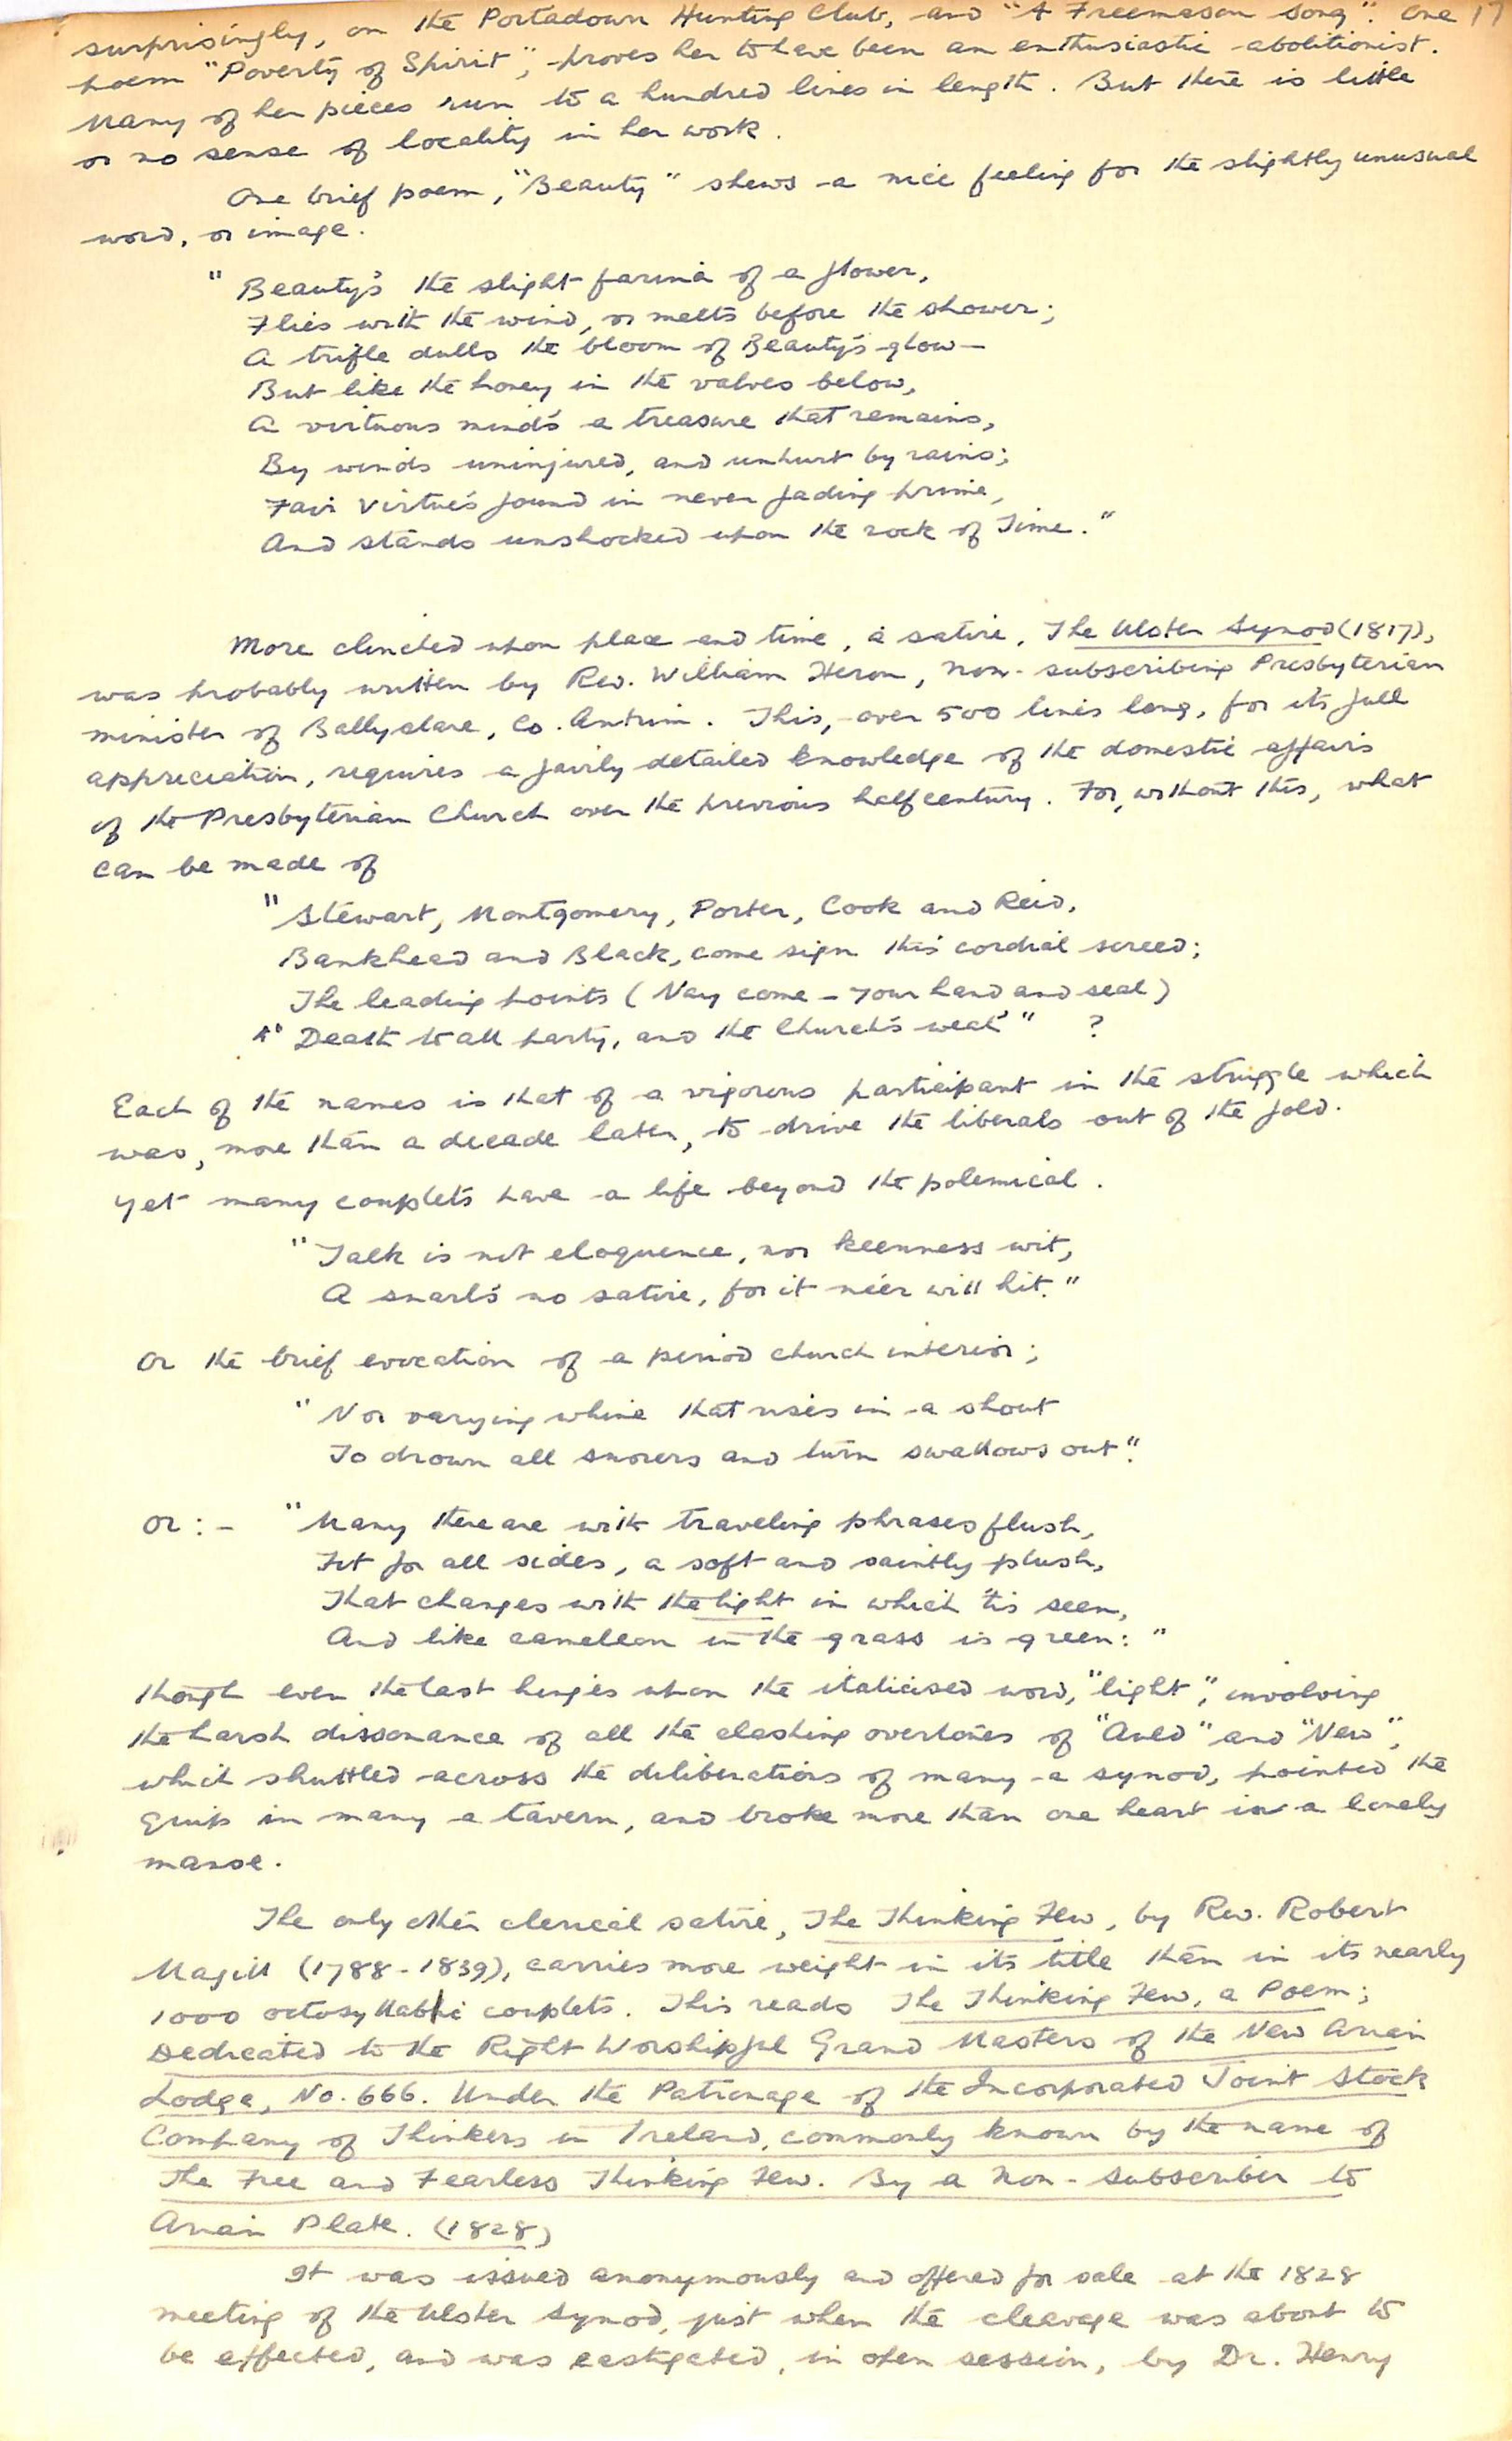 surprisingly, on the Portadown Hunting Club, and "A Freemason Song". One 17
poem "Poverty of Spirit", proves her to have been an enthusiastic abolitionist.
Many of her pieces run to a hundred lines in length. But there is little
or no sense of locality in her work.
One brief poem, "Beauty" shews a nice feeling for the slightly unusual
word, or image.
"Beauty's the slight farina of a flower,
Flies with the wind, or melts before the shower;
A trifle dulls the bloom of Beauty's glow—
But like the honey in the valves below,
A virtuous mind's a treasure that remains,
By winds uninjured, and unhurt by rains;
Fair Virtue's found in never fading prime,
And stands unshocked upon the rock of Time."
More clenched upon place and time, a satire, The Ulster Synod (1817),
was probably written by Rev. William Heron, non-subscribing Presbyterian
minister of Ballyclare, Co. Antrim. This, over 500 lines long, for its full
appreciation, requires a fairly detailed knowledge of the domestic affairs
of the Presbyterian Church over the previous half century. For, without this, what
can be made of
"Stewart, Montgomery, Porter, Cook and Reid,
Bankhead and Black, come sign this cordial screed;
The leading points (Nay come – your hand and seal)
"Death to all party, and the Church's weal" " ?
Each of the names is that of a vigorous participant in the struggle which
was, more than a decade later, to drive the liberals out of the fold.
Yet many couplets have a life beyond the polemical.
"Talk is not eloquence, nor keenness wit,
A snarl's no satire, for it ne'er will hit."
Or the brief evocation of a period church interior;
"Nor varying whine that rises in a shout
To drown all snorers and turn swallows out".
or:- "Many there are with traveling phrases flush,
Fit for all sides, a soft and saintly plush,
That changes with the light in which 'tis seen,
And like cameleon in the grass is green:"
though even the last hinges upon the italicised word, "light", involving
the harsh dissonance of all the clashing overtones of "Auld" and "New",
which shuttled across the deliberations of many a synod, pointed the
quips in many a tavern, and broke more than one heart in a lonely
manse.
The only other clerical satire, The Thinking Few, by Rev. Robert
Magill (1788-1839), carries more weight in its title than in its nearly
1000 octosyllabic couplets. This reads The Thinking Few, a Poem;
Dedicated to the Right Worshipful Grand Masters of the New Arian
Lodge, No. 666. Under the Patronage of the Incorporated Joint Stock
Company of Thinkers in Ireland, commonly known by the name of
The Free and Fearless Thinking Few. By a Non-Subscriber to
Arian Plate. (1828)
It was issued anonymously and offered for sale at the 1828
meeting of the Ulster Synod, just when the cleavage was about to
be effected, and was castigated, in open session, by Dr. Henry